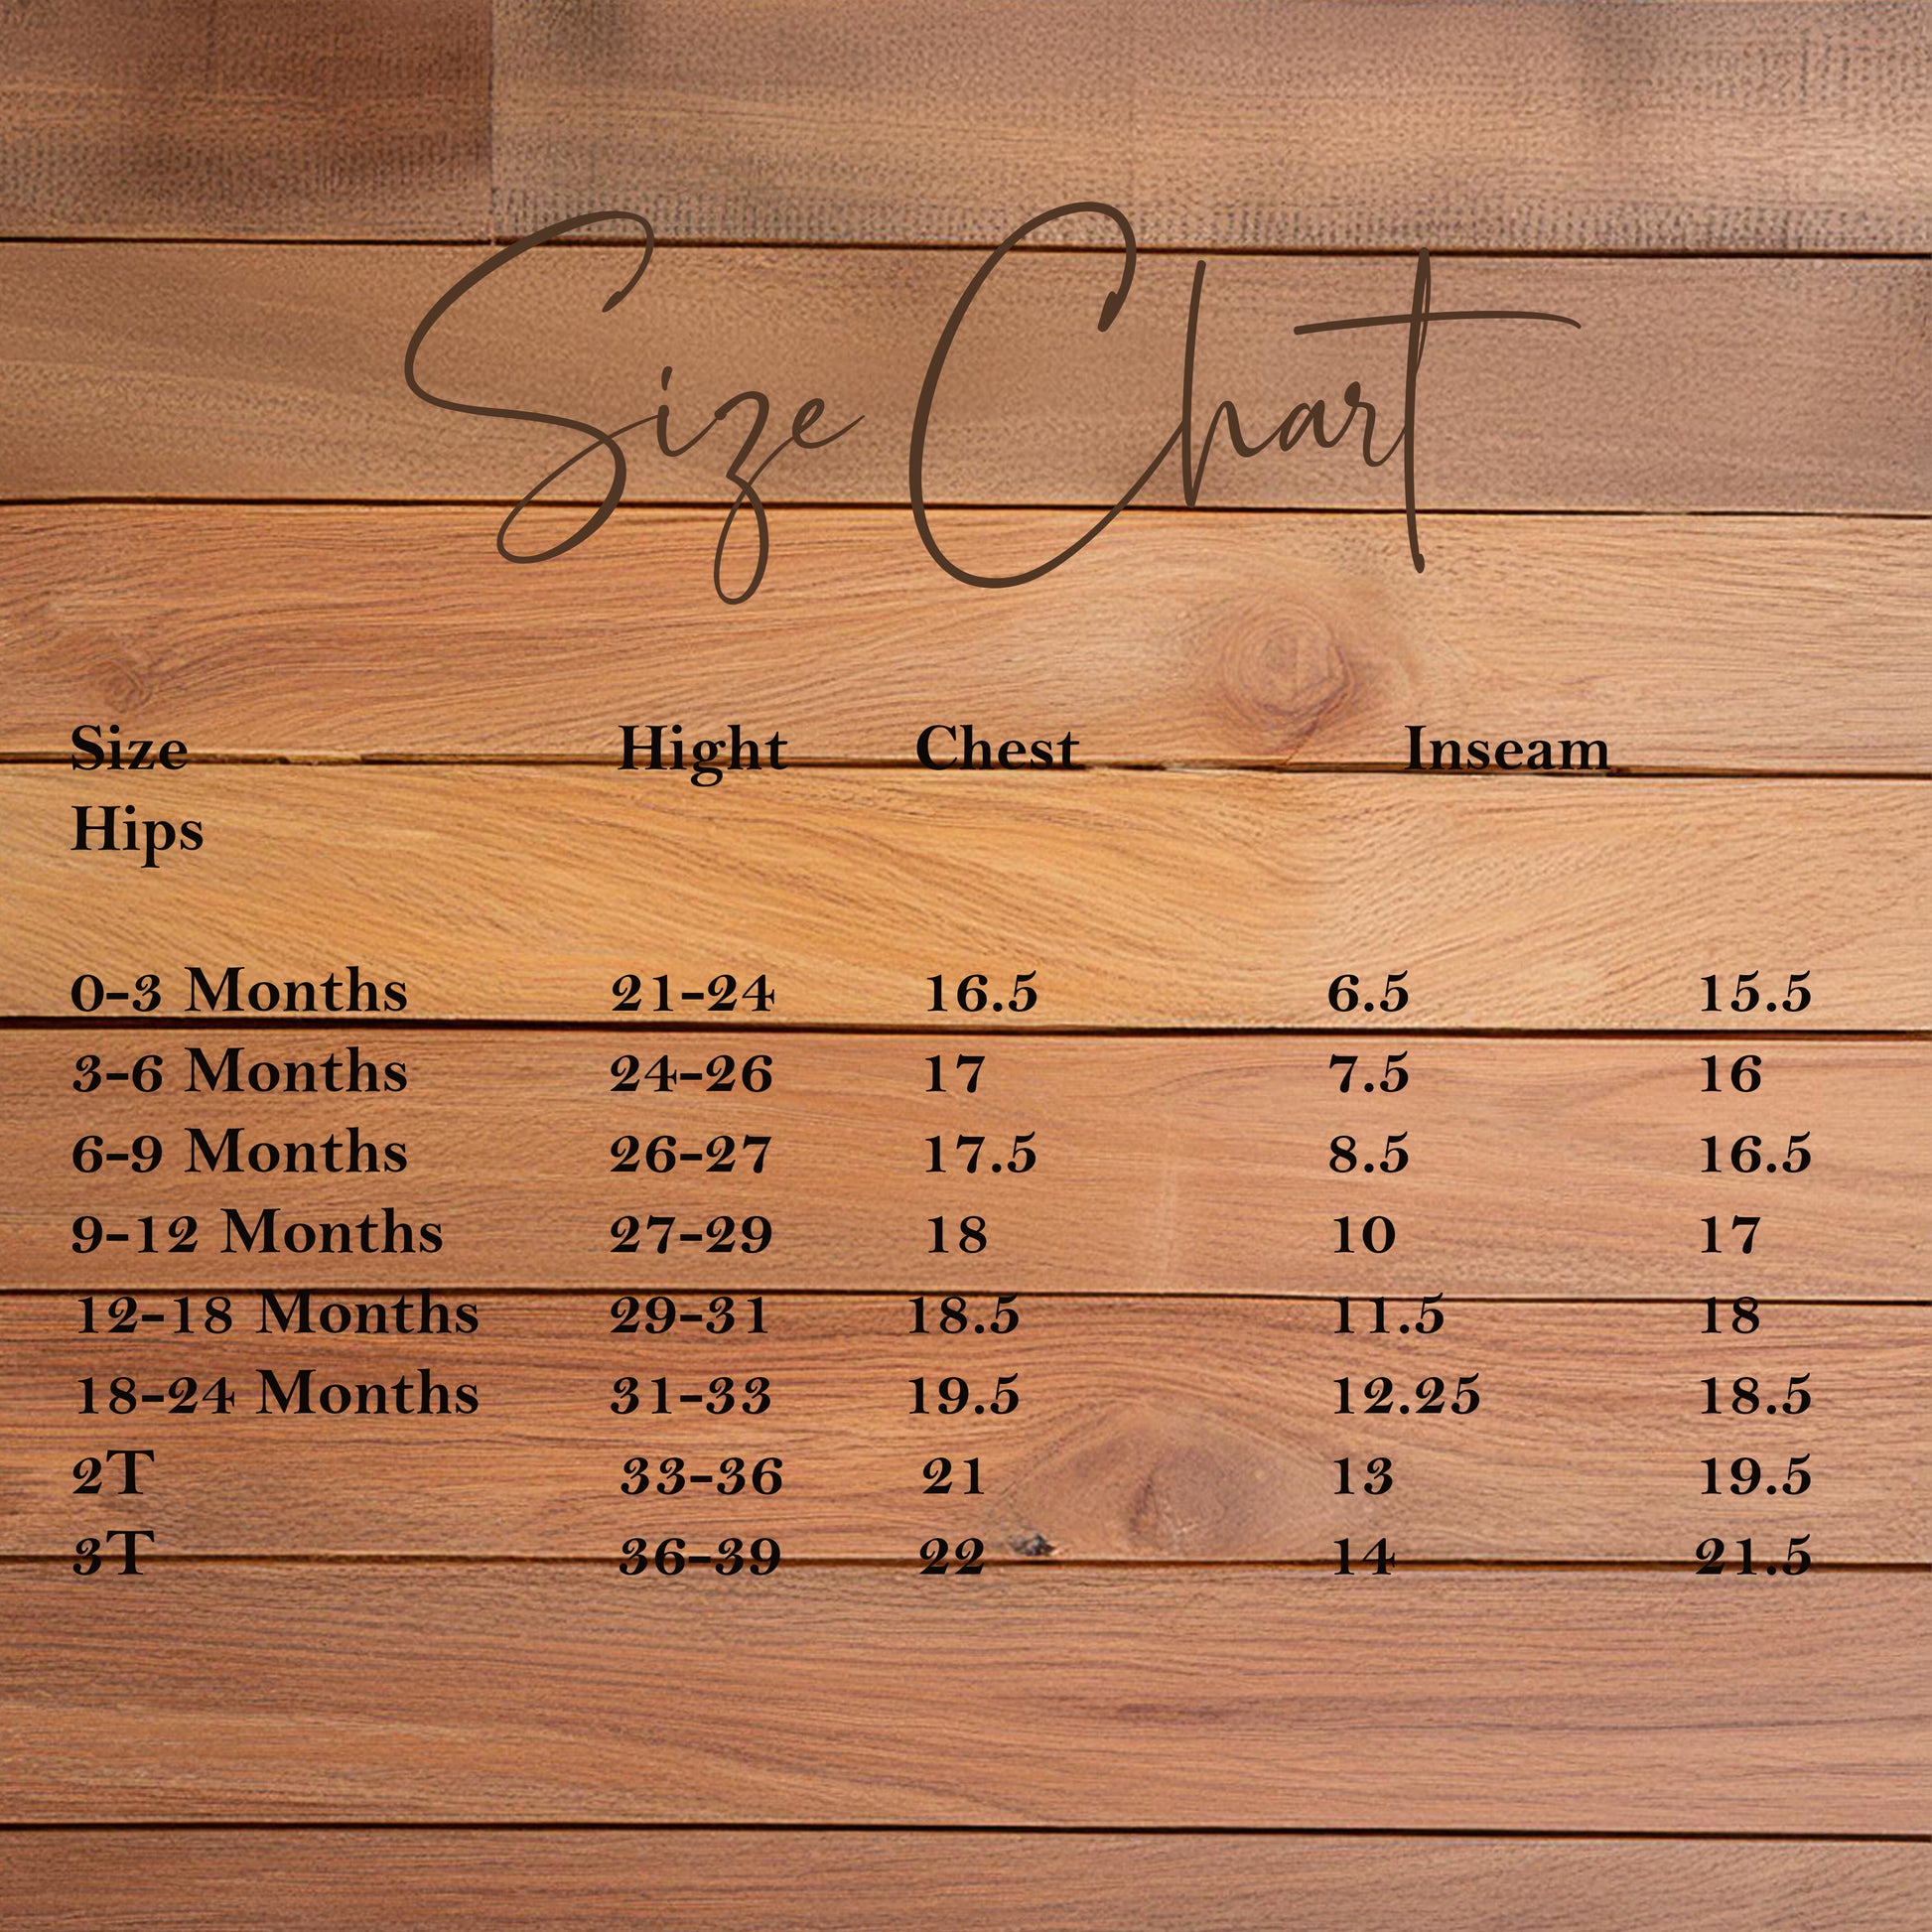 Size Chart
Size Hight Chest Inseam
Hips
0-3 Months 21-24 16.5 6.5 15.5
3-6 Months 24-26 17 7.5 16
6-9 Months 26-27 17.5 8.5 16.5
9-12 Months 27-29 18 10 17
12-18 Months 29-31 18.5 11.5 18
18-24 Months 31-33 19.5 12.25 18.5
2T 33-36 21 13 19.5
3T 36-39 22 14 21.5